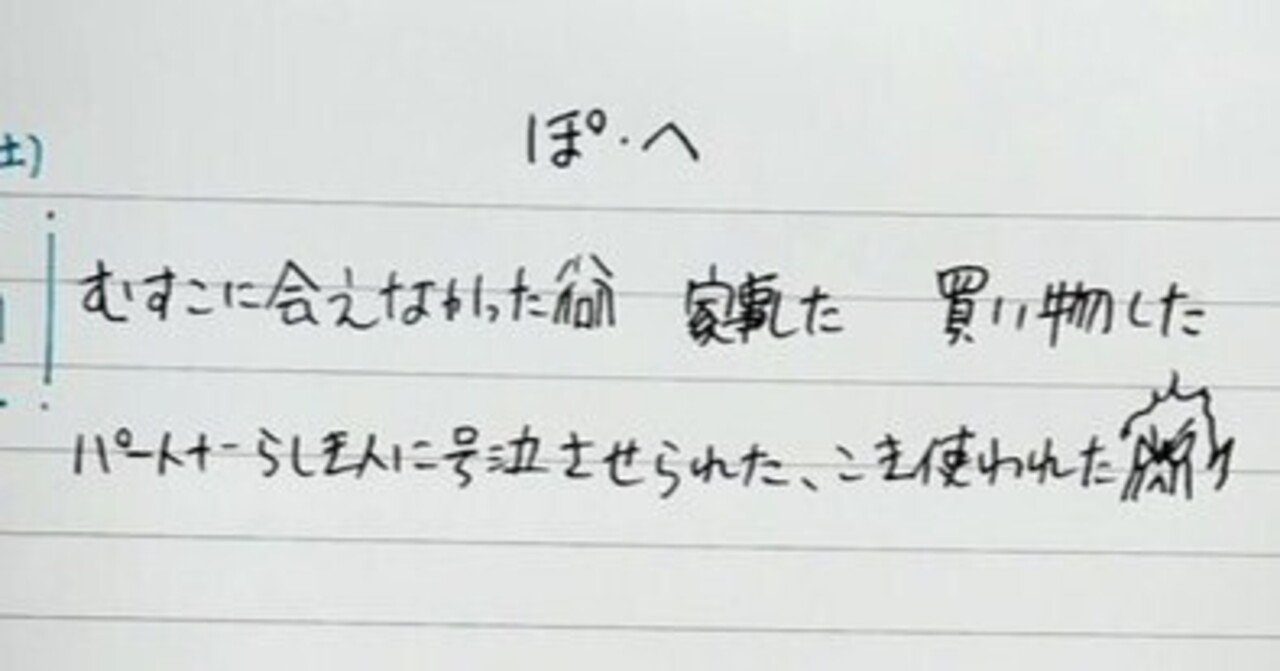 土)
ぽ・へ
むすこに会えなかった 家事した 買い物した
パートナーらしき人に号泣させられた、こき使われた